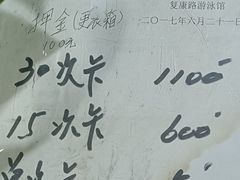 复康路游泳馆
二〇一七年六月二十一日
押金(更衣箱)
100元
30次卡 1100
15次卡 600
次卡